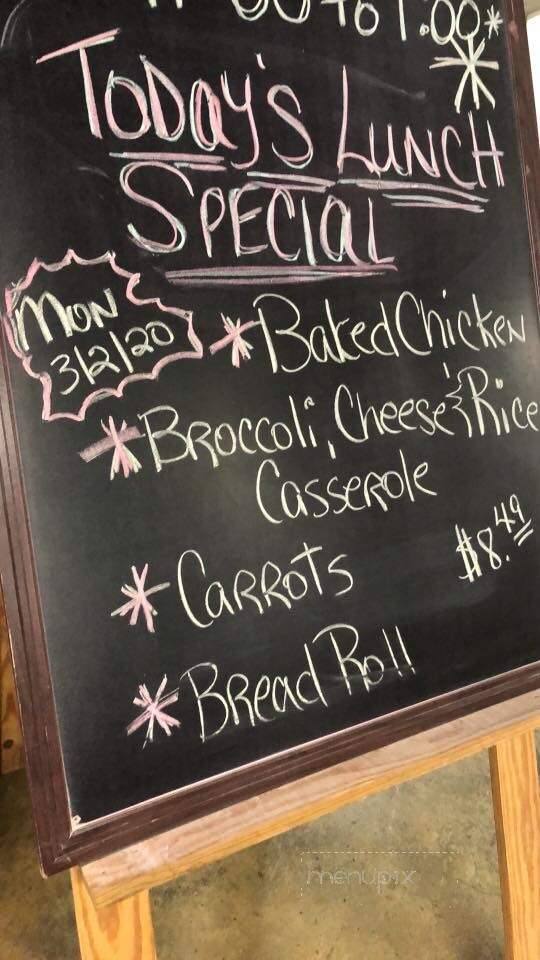 00 to 1:00*
Today's Lunch
Special
Mon
3/2/20
* Baked Chicken
* Broccoli, Cheese & Rice
Casserole
* Carrots
$8.49
* Bread Roll
menupix